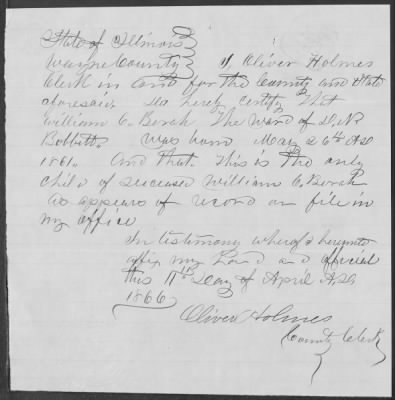 State of Illinois
Wayne County I Oliver Holmes
Clerk in and for the County and State
aforesaid do hereby certify That
William C. Borah The Ward of
Bobbitt was born May 26th AD
1861. And that This is the only
child of deceased William C. Borah
as appears of record on file in
my office
In testimony whereof I hereunto
affix my hand and official
this 11th Day of April AD
1866
Oliver Holmes
County Clerk